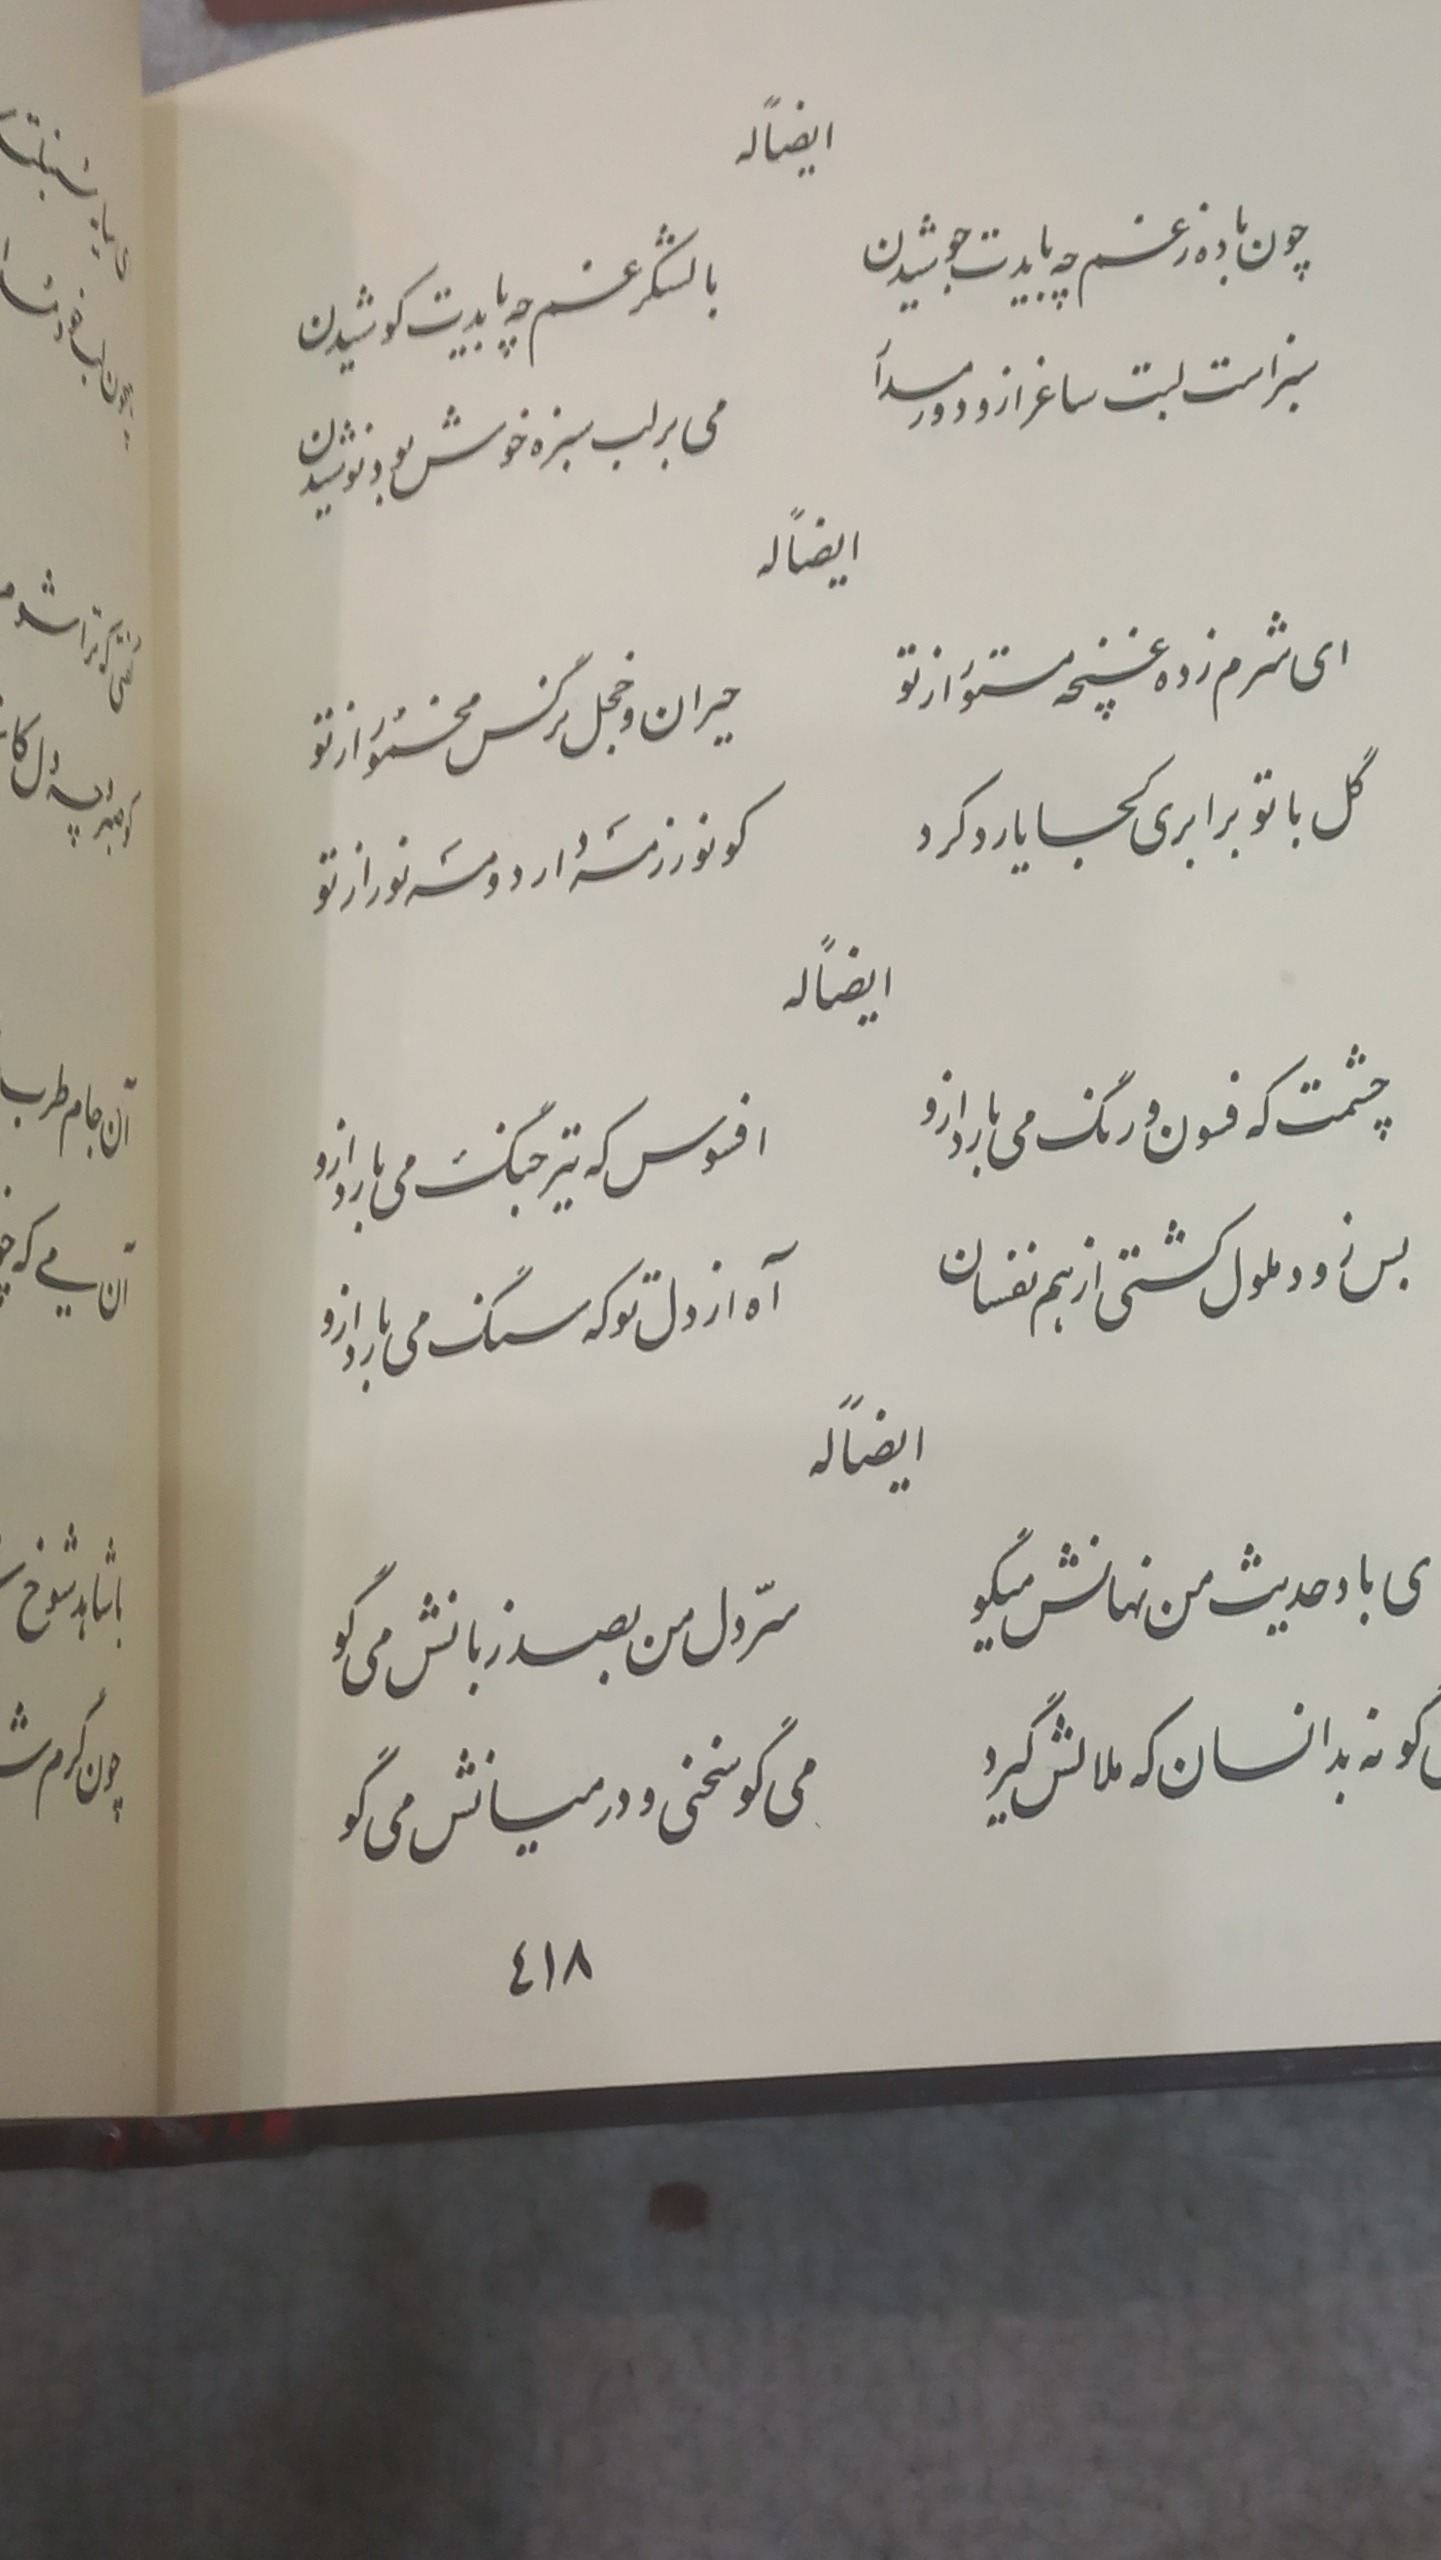 ایضاً له
چون باده ز غم چه بایدت جوشیدن
با لشگر غم چه بایدت کوشیدن
سبز است لبت ساغر ازو دور مدار
می بر لب سبزه خوش بود نوشیدن
ایضاً له
ای شرم زده غنچه مستور از تو
حیران و خجل نرگس مخمور از تو
گل با تو برابری کجا یارد کرد
کو نور ز مه دارد و مه نور از تو
ایضاً له
چشمت که فسون و رنگ می بارد ازو
افسوس که تیر جنگ می بارد ازو
بس زود ملول گشتی از هم نفسان
آه از دل تو که سنگ می بارد ازو
ایضاً له
ی باد حدیث من نهانش میگو
سرّ دل من بصد زبانش می گو
گو نه بدانسان که ملالش گیرد
می گو سخنی و در میانش می گو
٤١٨
آن جام طرب
آن می که
با شاهد شوخ
چون گرم